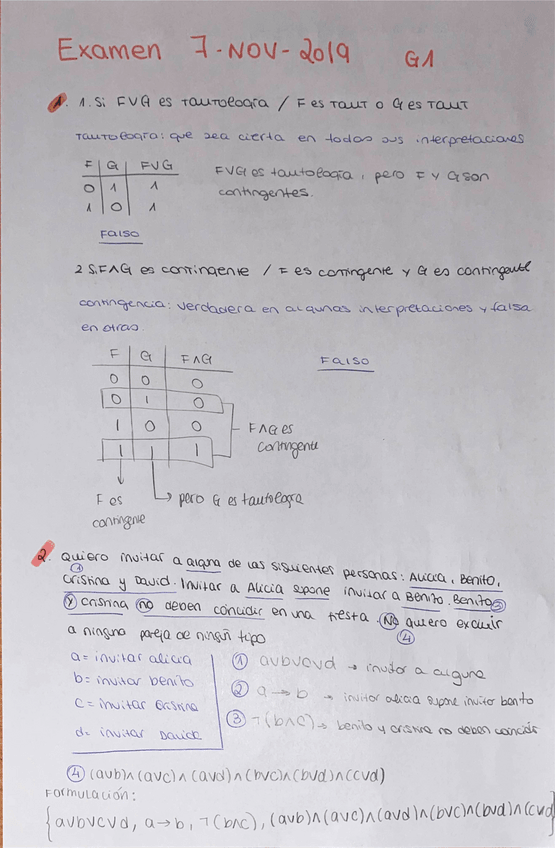 Examen 7-NOV-2019 G1
1. 1. Si FVG es Tautología / F es TAUT o G es TAUT
TAUTOlogía: que sea cierta en todas sus interpretaciones
F G FVG
0 1 1
1 0 1
FVG es tautología, pero F y G son
contingentes.
Falso
2 Si F∧G es contingente / F es contingente y G es contingente
contingencia: verdadera en algunas interpretaciones y falsa
en otras.
F G F∧G
0 0 0
0 1 0
1 0 0
1 1 1
Falso
F∧G es
contingente
F es
contingente
pero G es tautología
2. Quiero invitar a alguna de las siguientes personas: Alicia, Benito,
①
Cristina y David. Invitar a Alicia supone invitar a Benito. Benito ③
y cristina no deben coincidir en una fiesta. No quiero excluir
a ninguna pareja de ningún tipo
④
a = invitar alicia
b = invitar benito
c = invitar cristina
d = invitar David
① avbvcvd → invitar a alguna
② a → b → invitar alicia supone invitar benito
③ ¬(b∧c) → benito y cristina no deben coincidir
④ (avb)∧(avc)∧(avd)∧(bvc)∧(bvd)∧(cvd)
Formulación:
{avbvcvd, a→b, ¬(b∧c), (avb)∧(avc)∧(avd)∧(bvc)∧(bvd)∧(cvd)